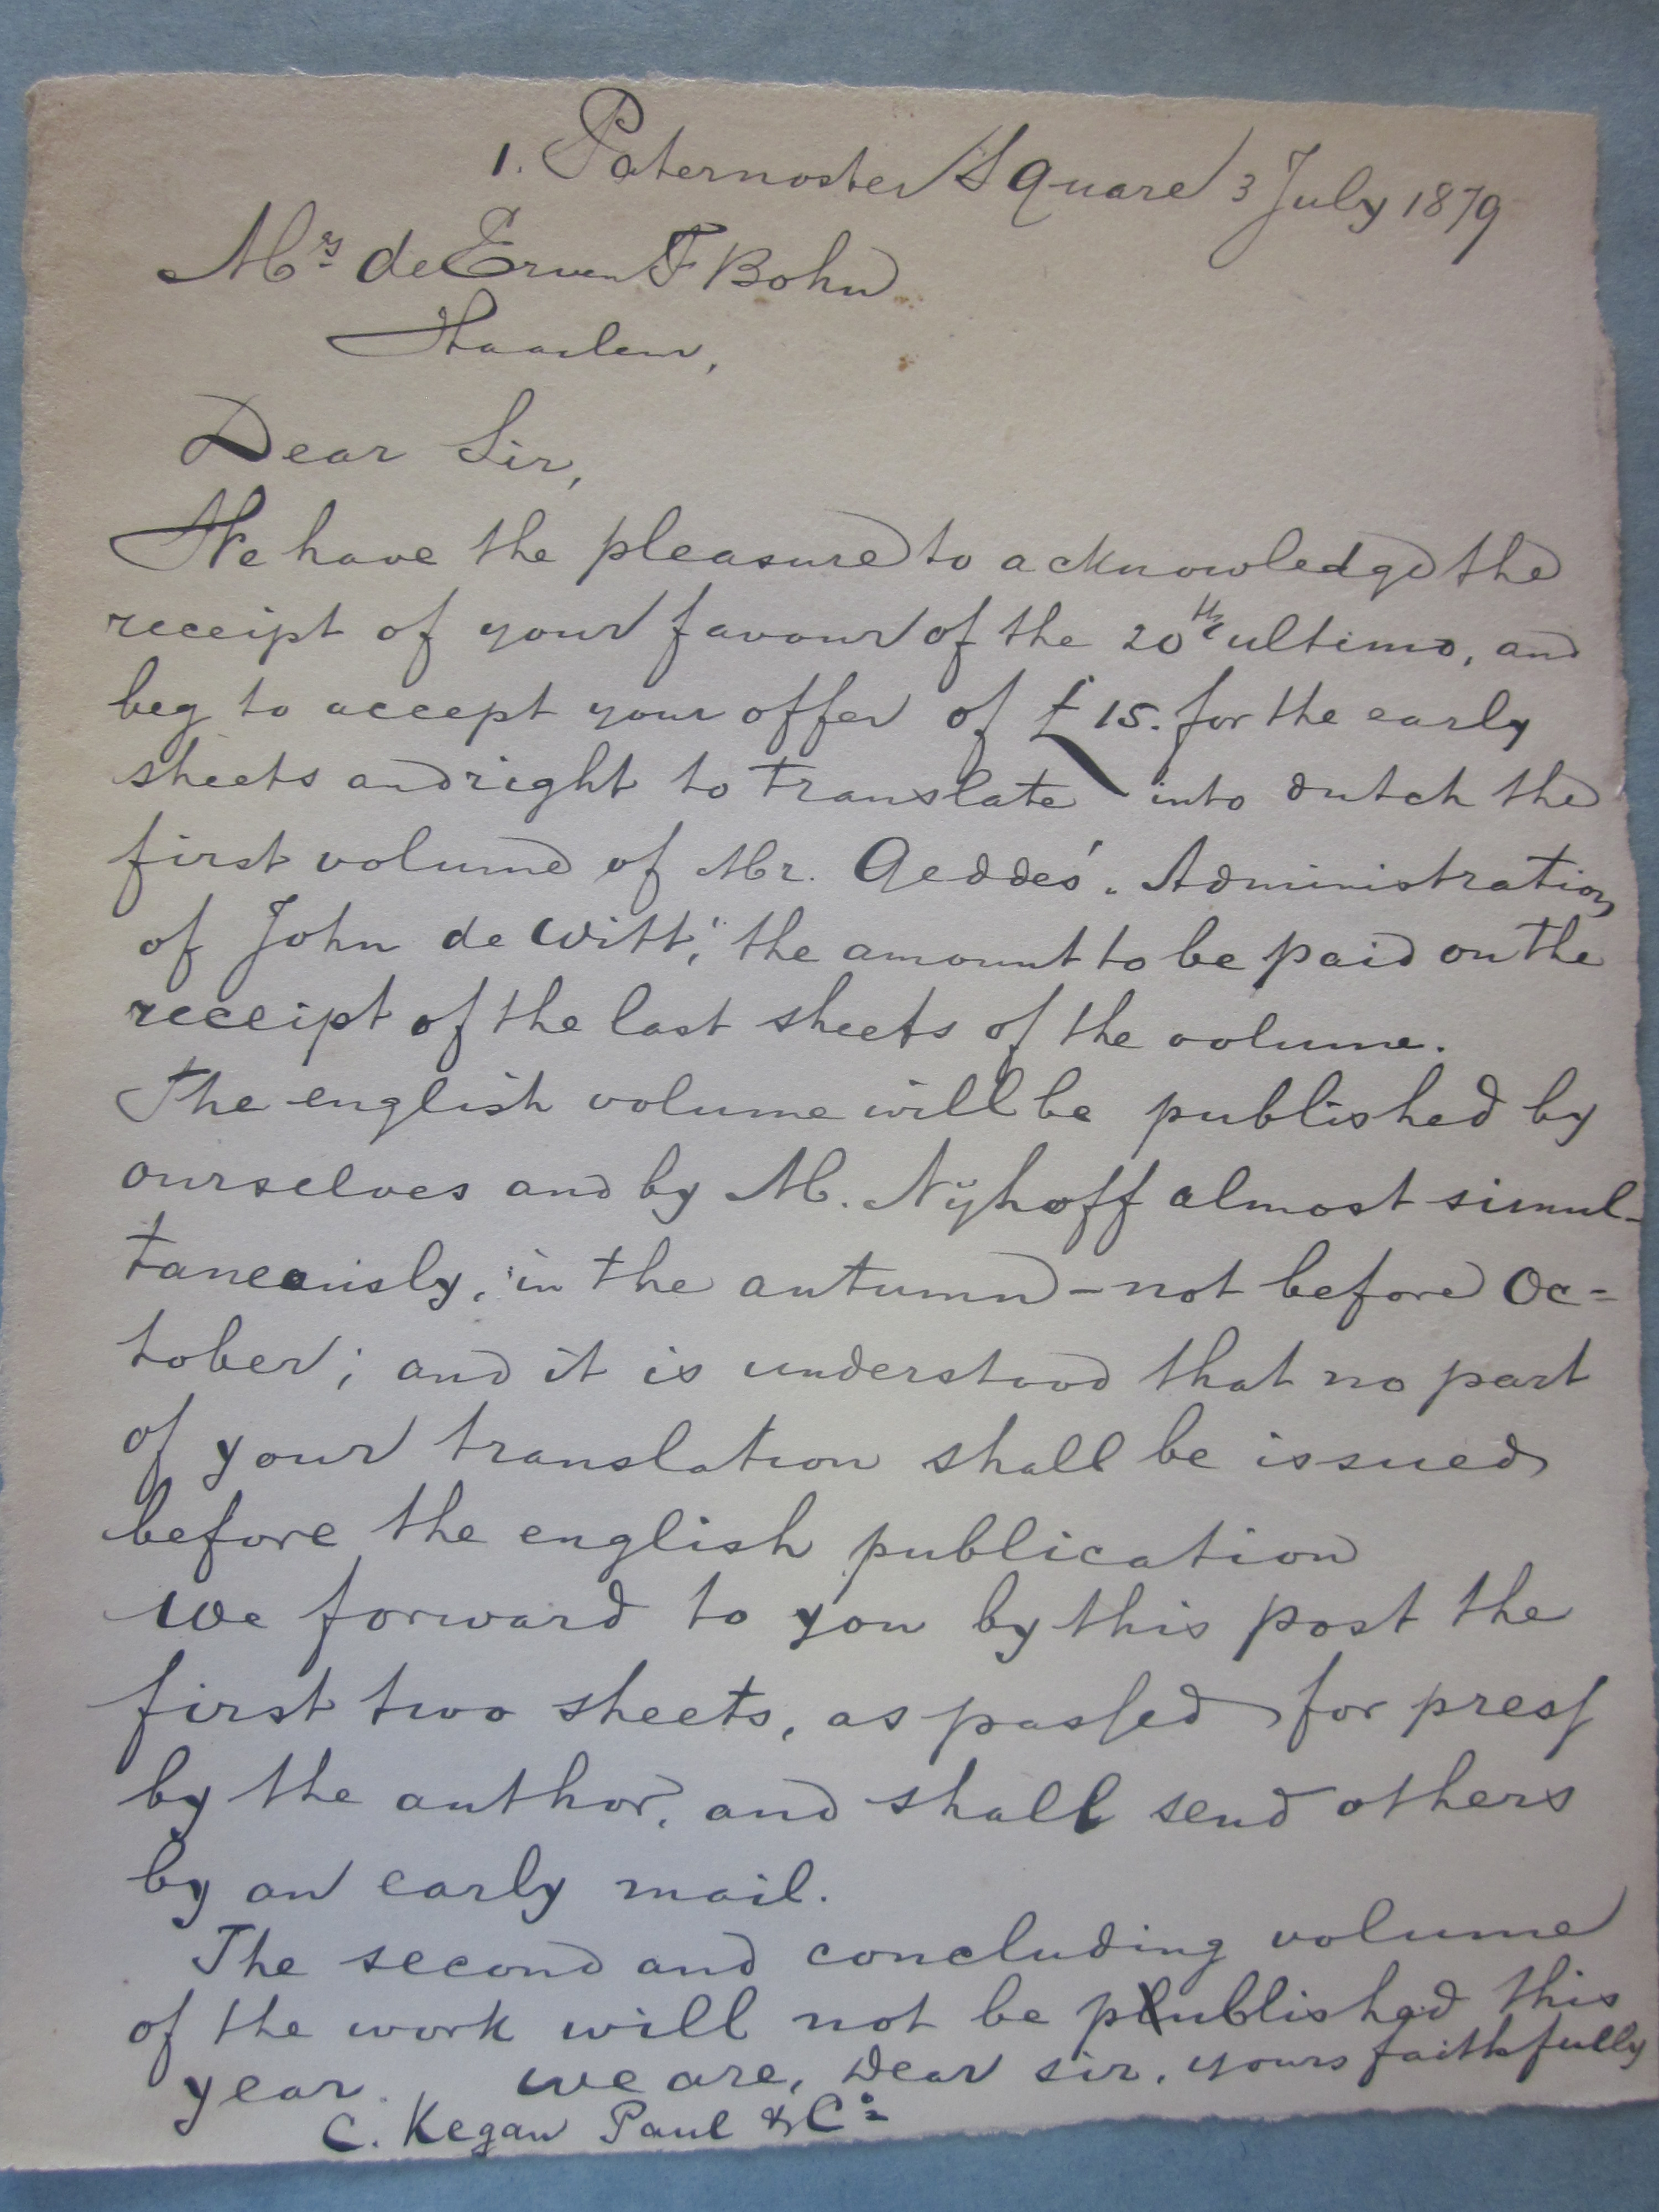 1. Paternoster Square 3 July 1879
Mrs de Erven F Bohn
Haarlem,
Dear Sir,
We have the pleasure to acknowledge the
receipt of your favour of the 20th ultimo, and
beg to accept your offer of £15. for the early
sheets and right to translate into dutch the
first volume of Mr. Geddes' "Administration
of John de Witt," the amount to be paid on the
receipt of the last sheets of the volume.
The english volume will be published by
ourselves and by M. Nÿhoff almost simul-
taneously, in the autumn - not before Oc=
tober; and it is understood that no part
of your translation shall be issued
before the english publication
We forward to you by this post the
first two sheets, as paſsed for preſs
by the author, and shall send others
by an early mail.
The second and concluding volume
of the work will not be published this
year. we are, Dear sir, yours faithfully
C. Kegan Paul & Co